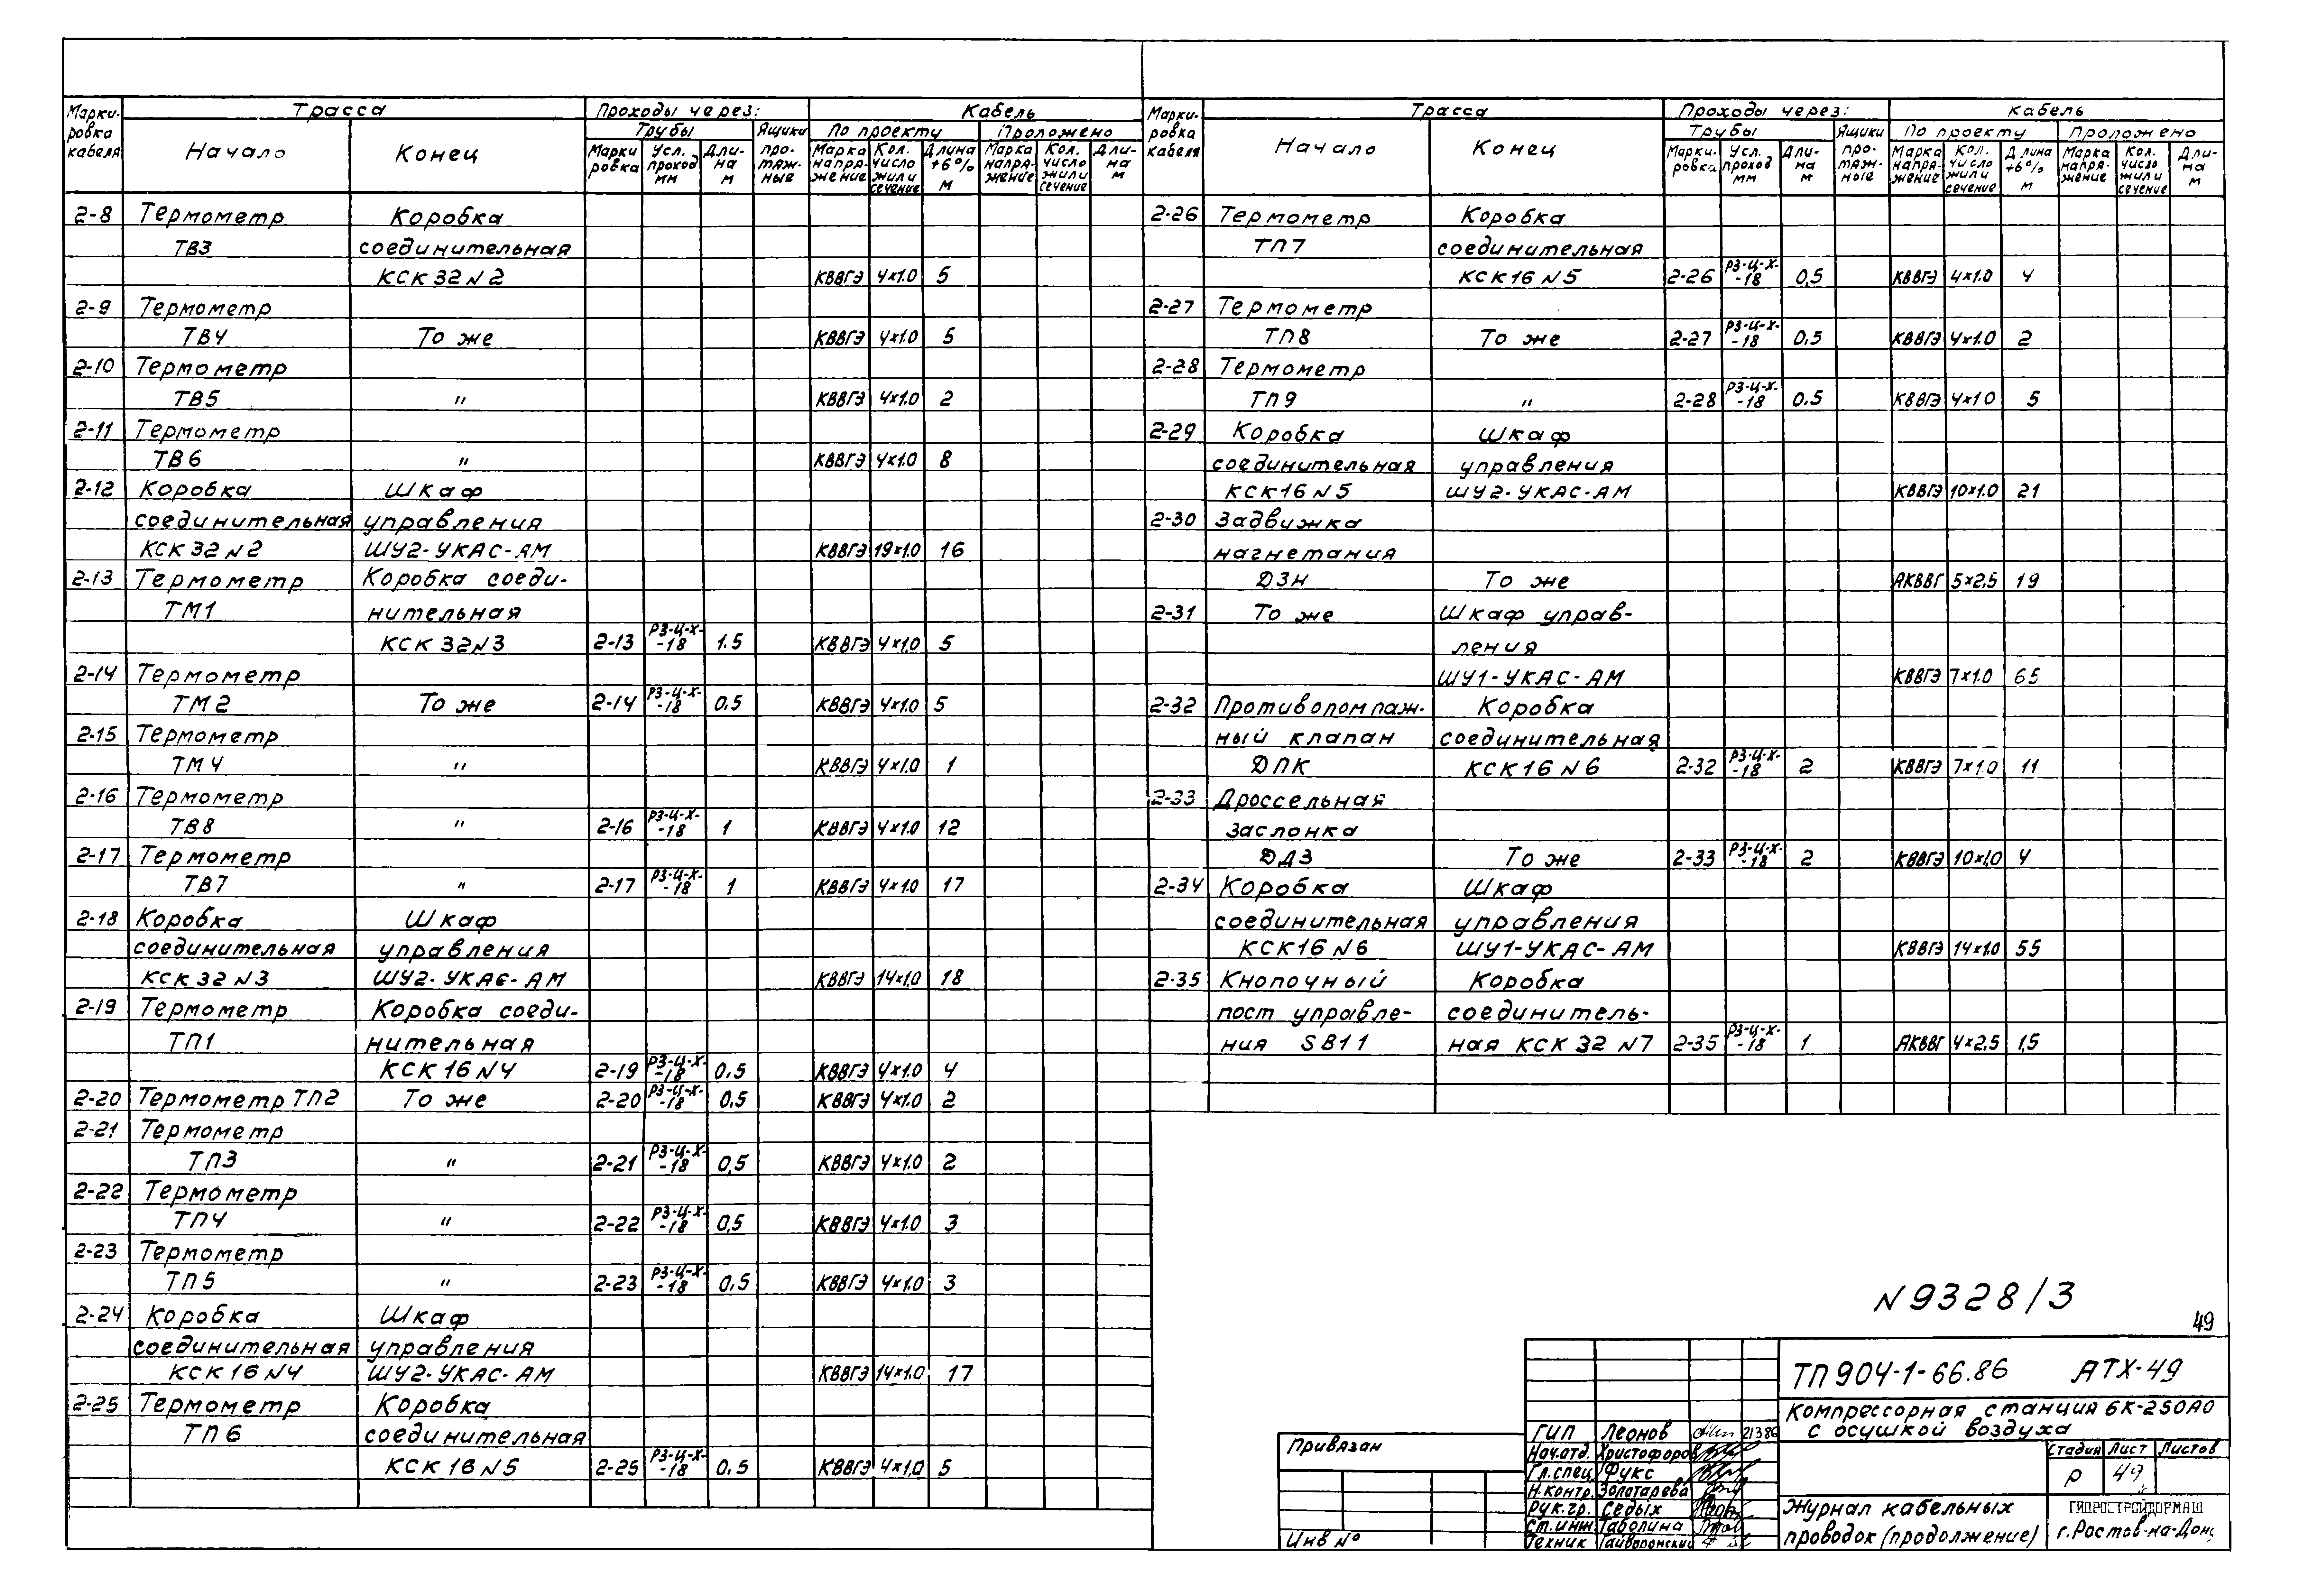 Марки-ровка кабеля | Трасса | Проходы через: | Кабель
Начало | Конец | Трубы | Ящики про-тяж-ные | По проекту | Проложено
Марки ровка | Усл. проход мм | Дли-на м | Марка напря-жение | Кол. число жил и сечение | Длина +6% м | Марка напря-жение | Кол. число жил и сечение | Дли-на м
2-8 Термометр Коробка
ТВ3 соединительная
КСК 32 N2 КВВГЭ 4х1.0 5
2-9 Термометр
ТВ4 То же КВВГЭ 4х1.0 5
2-10 Термометр
ТВ5 " КВВГЭ 4х1.0 2
2-11 Термометр
ТВ6 " КВВГЭ 4х1.0 8
2-12 Коробка Шкаф
соединительная управления
КСК 32 N2 ШУ2-УКАС-АМ КВВГЭ 19х1.0 16
2-13 Термометр Коробка соеди-
ТМ1 нительная
КСК 32 N3 2-13 РЗ-Ц-Х--18 1.5 КВВГЭ 4х1.0 5
2-14 Термометр
ТМ2 То же 2-14 РЗ-Ц-Х--18 0.5 КВВГЭ 4х1.0 5
2-15 Термометр
ТМ4 " КВВГЭ 4х1.0 1
2-16 Термометр
ТВ8 " 2-16 РЗ-Ц-Х--18 1 КВВГЭ 4х1.0 12
2-17 Термометр
ТВ7 " 2-17 РЗ-Ц-Х--18 1 КВВГЭ 4х1.0 17
2-18 Коробка Шкаф
соединительная управления
КСК 32 N3 ШУ2-УКАС-АМ КВВГЭ 14х1.0 18
2-19 Термометр Коробка соеди-
ТП1 нительная
КСК 16 N4 2-19 РЗ-Ц-Х--18 0.5 КВВГЭ 4х1.0 4
2-20 Термометр ТП2 То же 2-20 РЗ-Ц-Х--18 0.5 КВВГЭ 4х1.0 2
2-21 Термометр
ТП3 " 2-21 РЗ-Ц-Х--18 0,5 КВВГЭ 4х1.0 2
2-22 Термометр
ТП4 " 2-22 РЗ-Ц-Х--18 0,5 КВВГЭ 4х1.0 3
2-23 Термометр
ТП5 " 2-23 РЗ-Ц-Х--18 0,5 КВВГЭ 4х1.0 3
2-24 Коробка Шкаф
соединительная управления
КСК 16 N4 ШУ2-УКАС-АМ КВВГЭ 14х1.0 17
2-25 Термометр Коробка
ТП6 соединительная
КСК 16 N5 2-25 РЗ-Ц-Х--18 0.5 КВВГЭ 4х1.0 5
Марки-ровка кабеля | Трасса | Проходы через: | Кабель
Начало | Конец | Трубы | Ящики про-тяж-ные | По проекту | Проложено
Марки-ровка | Усл. проход мм | Дли-на м | Марка напря-жение | Кол. число жил и сечение | Длина +6% м | Марка напря-жение | Кол. число жил и сечение | Дли-на м
2-26 Термометр Коробка
ТП7 соединительная
КСК16 N5 2-26 РЗ-Ц-Х--18 0,5 КВВГЭ 4х1.0 4
2-27 Термометр
ТП8 То же 2-27 РЗ-Ц-Х--18 0.5 КВВГЭ 4х1.0 2
2-28 Термометр
ТП9 " 2-28 РЗ-Ц-Х--18 0.5 КВВГЭ 4х1 0 5
2-29 Коробка Шкаф
соединительная управления
КСК16 N5 ШУ2-УКАС-АМ КВВГЭ 10х1.0 21
2-30 Задвижка
нагнетания
ДЗН То же АКВВГ 5х2.5 19
2-31 То же Шкаф управ-
ления
ШУ1-УКАС-АМ КВВГЭ 7х1.0 65
2-32 Противопомпаж- Коробка
ный клапан соединительная
ДПК КСК16 N6 2-32 РЗ-Ц-Х--18 2 КВВГЭ 7х1.0 11
2-33 Дроссельная
заслонка
ДДЗ То же 2-33 РЗ-Ц-Х--18 2 КВВГЭ 10х1,0 4
2-34 Коробка Шкаф
соединительная управления
КСК16 N6 ШУ1-УКАС-АМ КВВГЭ 14х1.0 55
2-35 Кнопочный Коробка
пост управле- соединитель-
ния SB11 ная КСК 32 N7 2-35 РЗ-Ц-Х--18 1 АКВВГ 4х2.5 1,5
N 9328/3
49
ТП 904-1-66.86 АТХ-49
Компрессорная станция 6К-250АО
с осушкой воздуха
Стадия Лист Листов
Р 49
Журнал кабельных
проводок (продолжение)
ГИПРОСТРОЙДОРМАШ
г.Ростов-на-Дону
ГИП Леонов
Нач.отд. Христофоров
Гл.спец. Фукс
Н.контр. Золотарева
Рук.гр. Седых
Ст.инж. Таболина
Техник Гайворонский
Привязан
Инв N°